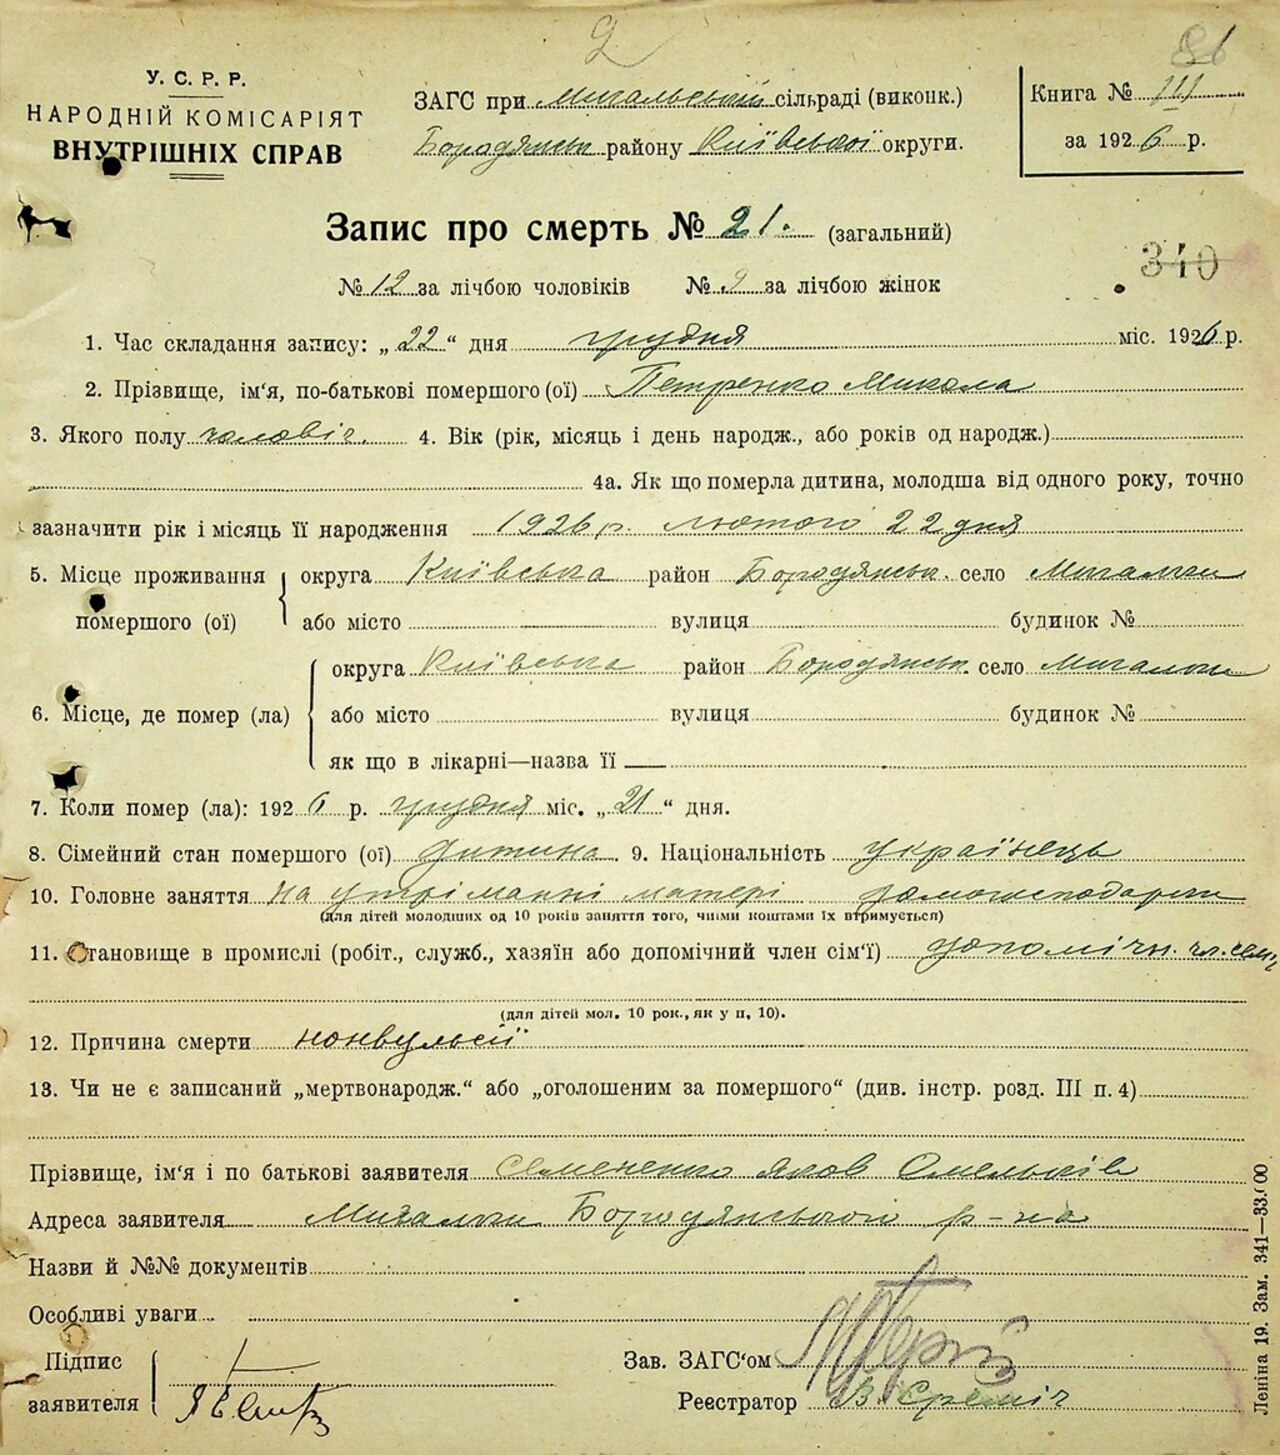 2
86
У. С. Р. Р.
НАРОДНІЙ КОМІСАРІЯТ
ВНУТРІШНІХ СПРАВ
ЗАГС при Мигальській сільраді (виконк.)
Бородянськ району Київської округи.
Книга № III
за 1926 р.
Запис про смерть № 21. (загальний)
340
№ 12 за лічбою чоловіків № 9 за лічбою жінок
1. Час складання запису: „22“ дня грудня міс. 1926 р.
2. Прізвище, ім‘я, по-батькові помершого (ої) Петренко Микола
3. Якого полу чоловіч. 4. Вік (рік, місяць і день народж., або років од народж.)
4а. Як що померла дитина, молодша від одного року, точно
зазначити рік і місяць її народження 1926 р. лютого 22 дня
5. Місце проживання помершого (ої) округа Київська район Бородянськ. село Мигалки
або місто вулиця будинок №
6. Місце, де помер (ла) округа Київська район Бородянськ. село Мигалки
або місто вулиця будинок №
як що в лікарні—назва її —
7. Коли помер (ла): 1926 р. грудня міс. „21“ дня.
8. Сімейний стан помершого (ої) дитина 9. Національність українець
10. Головне заняття на утріманні матері
(для дітей молодших од 10 років заняття того, чиїми коштами їх втримується)
11. Становище в промислі (робіт., служб., хазяїн або допомічний член сім‘ї) допомічн. чл. сем'ї
(для дітей мол. 10 рок., як у п. 10).
12. Причина смерти конвульсії
13. Чи не є записаний „мертвонародж.“ або „оголошеним за помершого“ (див. інстр. розд. III п. 4)
Прізвище, ім‘я і по батькові заявителя Семененко Яков Омельків
Адреса заявителя Мигалки Бородянського р-на
Назви й №№ документів
Особливі уваги
Підпис заявителя
Зав. ЗАГС‘ом
Реєстратор В. Яреміч
Леніна 19. Зам. 341—33.000